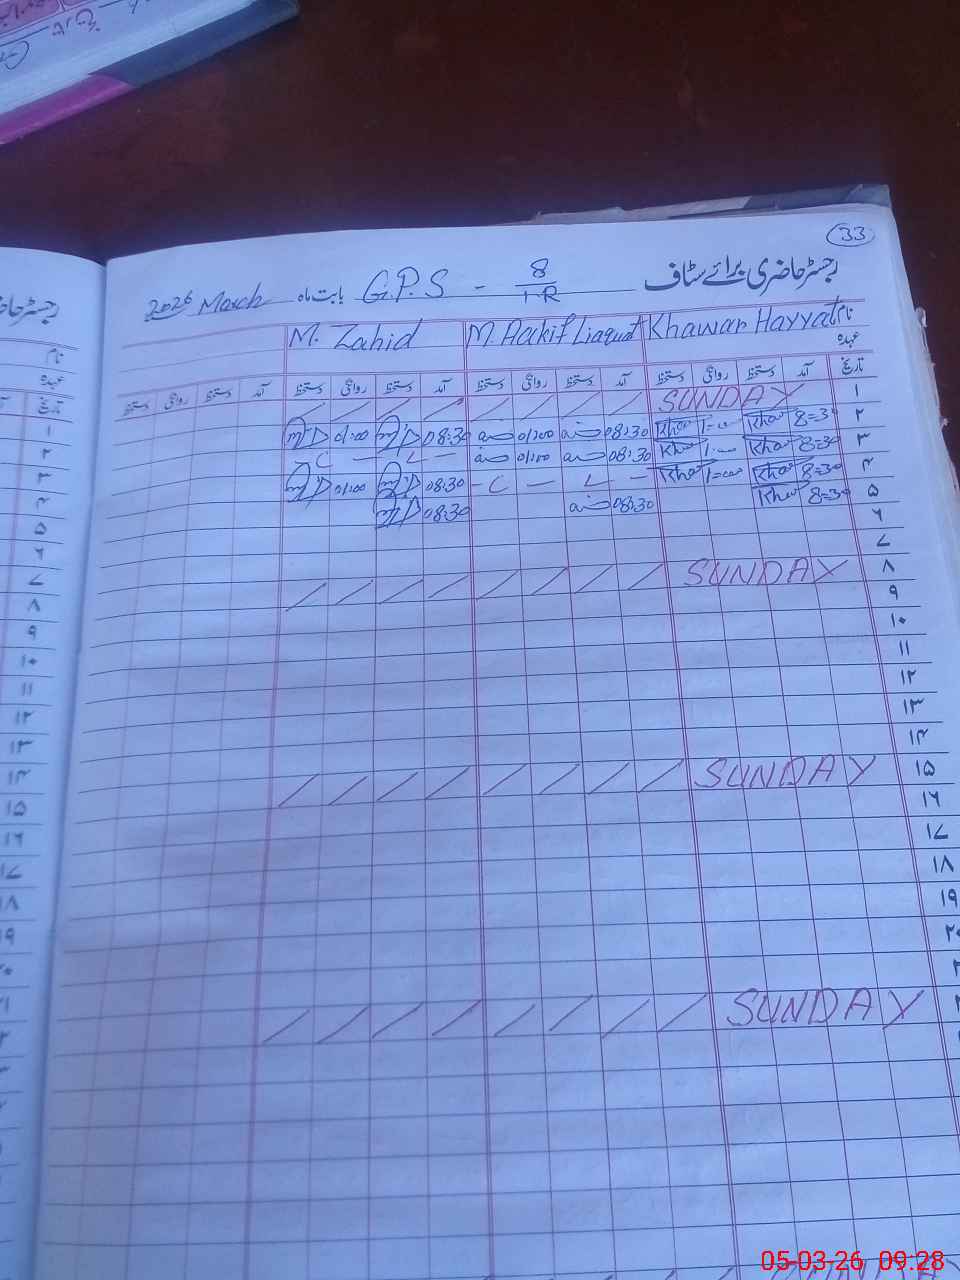 33
رجسٹر حاضری برائے سٹاف
G.P.S - 8/1-R بابت ماہ March 2026
نام Khawar Hayyat M. Aakif Liaquat M. Zahid
عہدہ
تاریخ آمد دستخط روانگی دستخط آمد دستخط روانگی دستخط آمد دستخط روانگی دستخط آمد دستخط روانگی دستخط
۱ SUNDAY
۲ 8=30 Khar 1=00 Khar 08:30 01:00 08:30 01:00
۳ 8=30 Khar 1:00 Kh 08:30 01:00 - L - C
۴ 8=30 Khar 1=00 Khar - L - C - 08:30 01:00
۵ 8=30 Khar 08:30 08:30
۶
۷
۸ SUNDAY
۹
۱۰
۱۱
۱۲
۱۳
۱۴
۱۵ SUNDAY
۱۶
۱۷
۱۸
۱۹
SUNDAY
رجسٹر حاضری
نام
عہدہ
تاریخ
۱
۲
۳
۴
۵
۶
۷
۸
۹
۱۰
۱۱
۱۲
۱۳
۱۴
۱۵
۱۶
۱۷
۱۸
۱۹
05-03-26 09:28